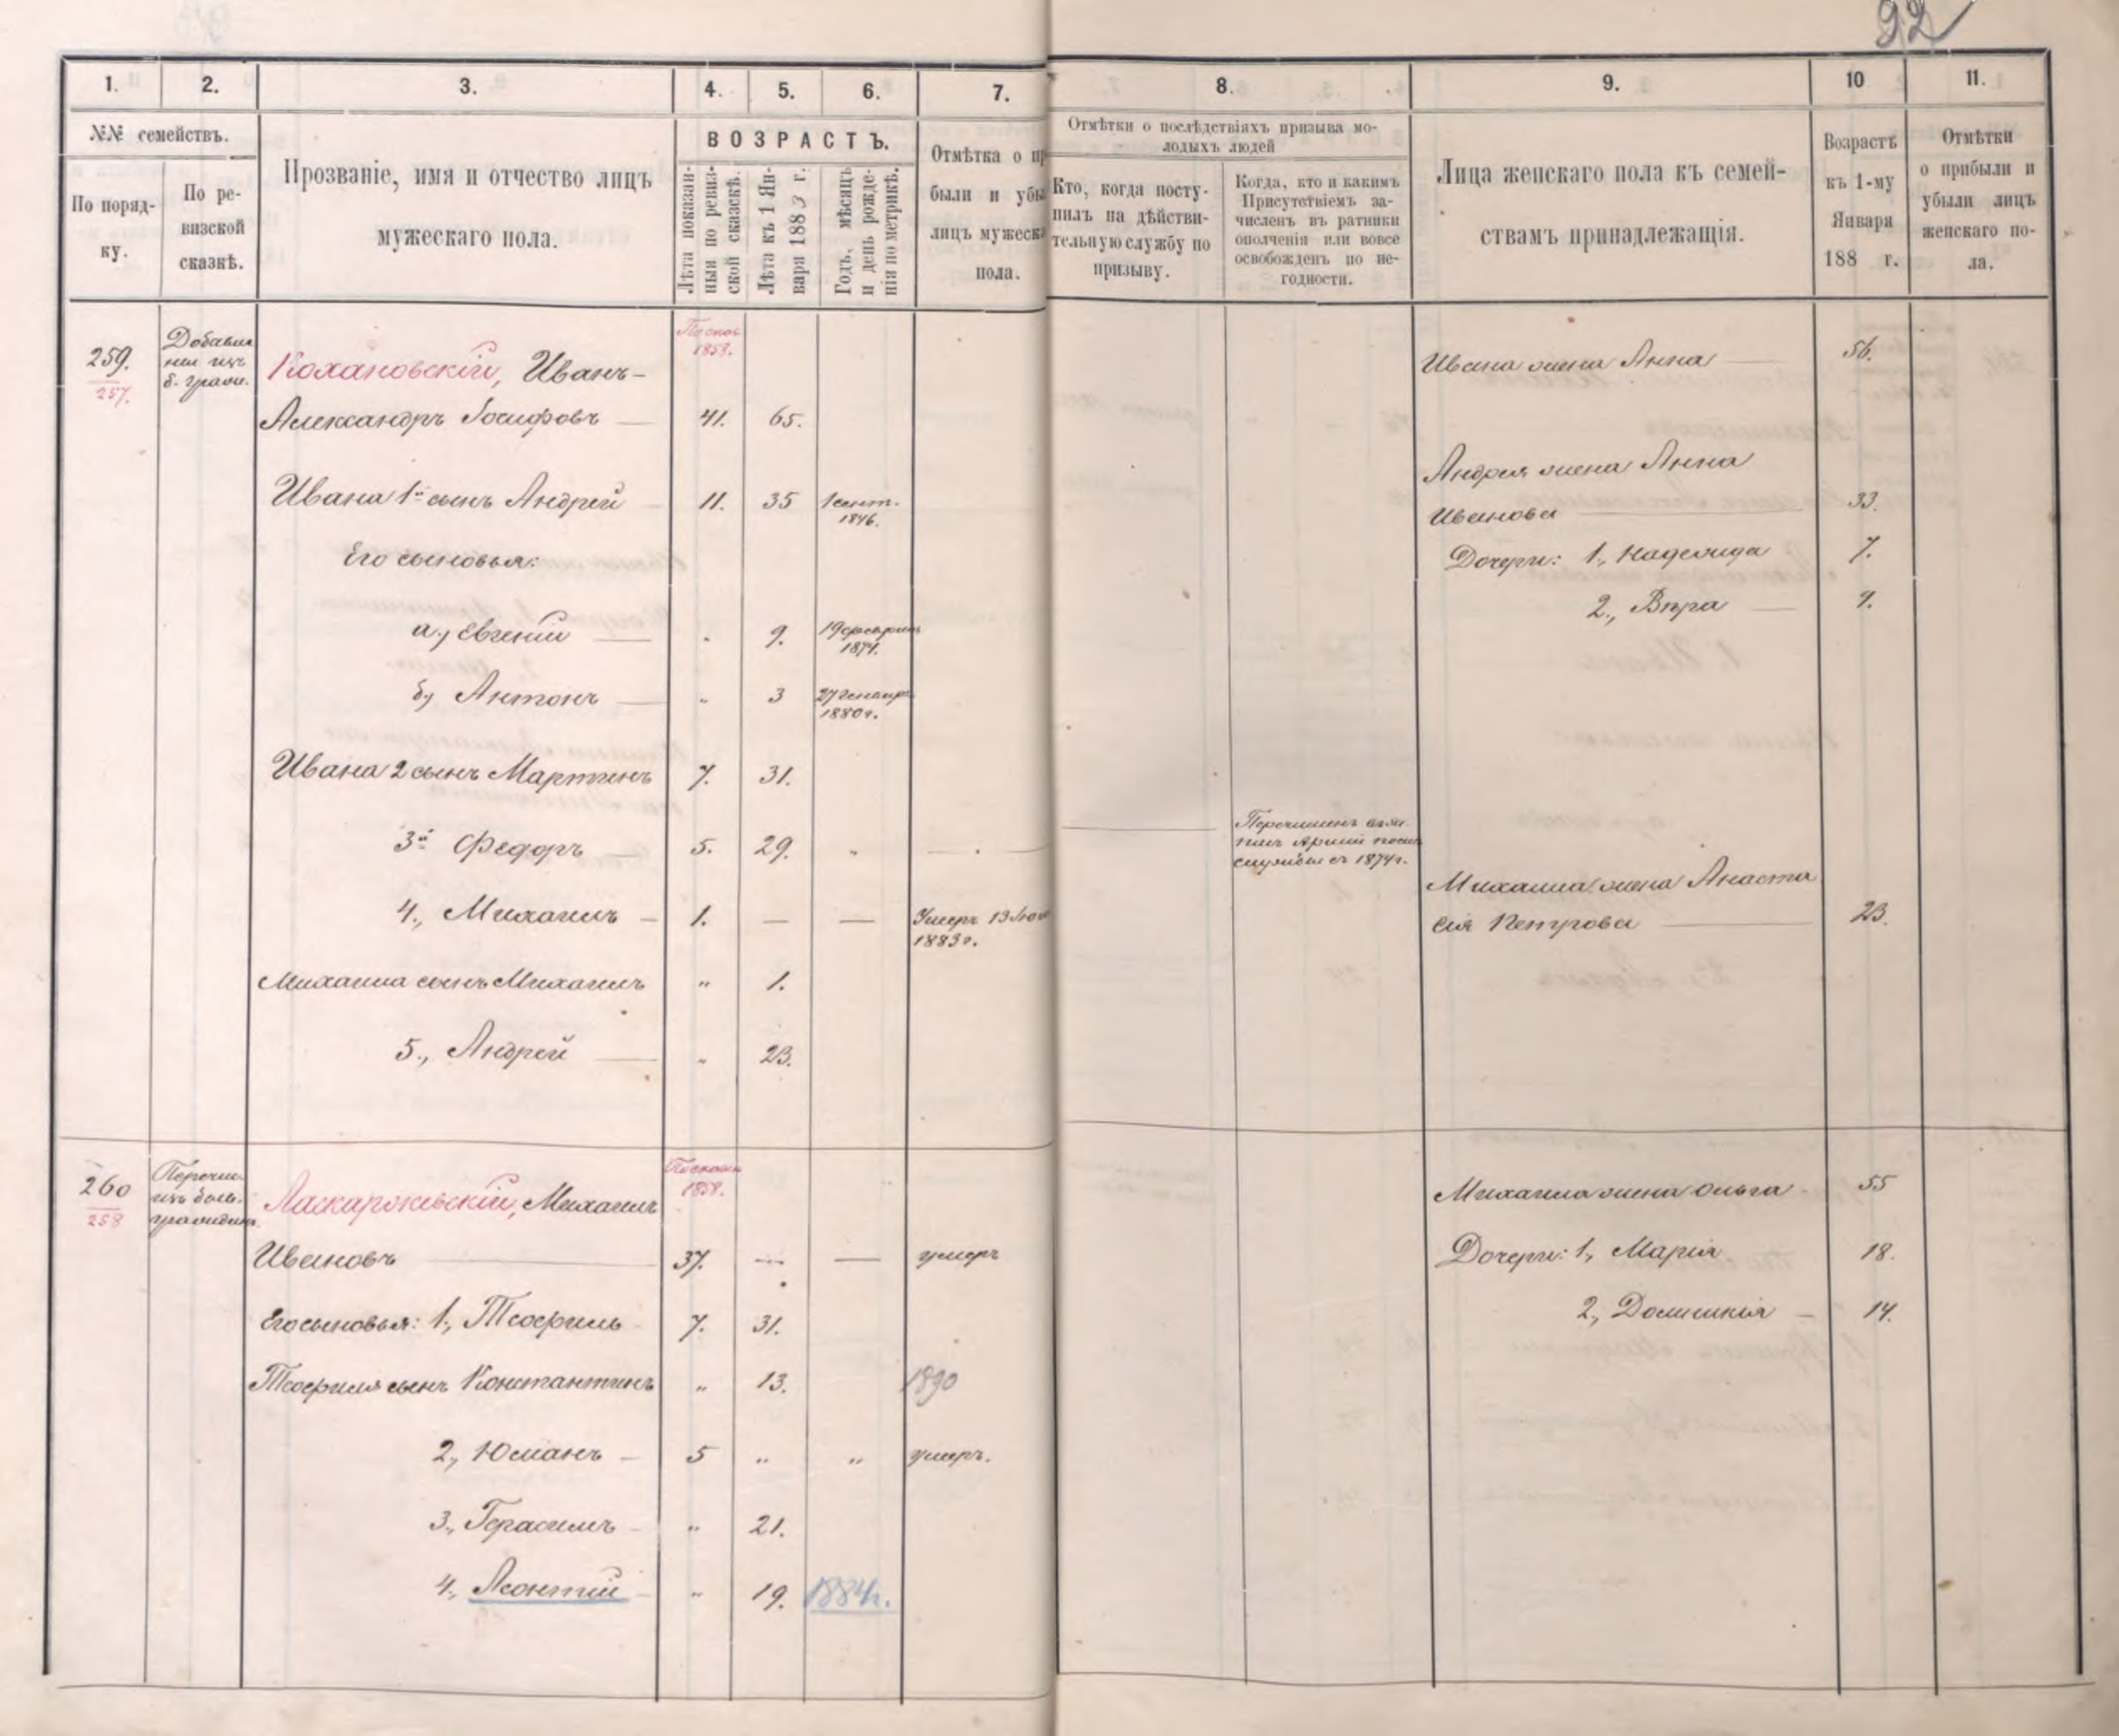 92
1.
2.
3.
4.
5.
6.
7.
8.
9.
10
11.
№№ семействъ.
По поряд-
ку.
По ре-
визской
сказкѣ.
Прозваніе, имя и отчество лицъ
мужескаго пола.
ВОЗРАСТЪ.
Лѣта показан-
ныя по ревиз-
ской сказкѣ.
Лѣта къ 1 Ян-
варя 1883 г.
Годъ, мѣсяцъ
и день рожде-
нія по метрикѣ.
Отмѣтка о пр
были и убы
лицъ мужеска
пола.
Отмѣтки о послѣдствіяхъ призыва мо-
лодыхъ людей
Кто, когда посту-
пилъ на дѣйстви-
тельную службу по
призыву.
Когда, кто и какимъ
Присутствіемъ за-
численъ въ ратники
ополченія или вовсе
освобожденъ по не-
годности.
Лица женскаго пола къ семей-
ствамъ принадлежащія.
Возрастъ
къ 1-му
Января
188 г.
Отмѣтки
о прибыли и
убыли лицъ
женскаго по-
ла.
259.
257.
изъ
б. гражд.
1858.
Кохановскій, Иванъ-
Александръ Іосифовъ 41. 65.
Ивана 1й сынъ Андрей 11. 35 1 сент.
1846.
Его сыновья:
а., Евгеній " 9. 19 февраля
1874.
б, Антонъ " 3 27 генваря
1880 г.
Ивана 2 сынъ Мартинъ 7. 31.
3й Федоръ 5. 29. "
Перечисленъ
арміи
службы съ 1874 г.
4., Михаилъ 1. — — Умеръ 13
1883 г.
Михаила сынъ Михаилъ " 1.
5., Андрей " 23.
Ивана жена Анна 56.
Андрея жена Анна
Иванова 33.
Дочери: 1., Надежда 7.
2., Вѣра 7.
Михаила жена Анаста
сія Петрова 23.
260
258
Перечис.
изъ
граждан.
1858.
Ласкаржевскій, Михаилъ
Ивановъ 37. — — умеръ
Его сыновья: 1., Теофиль 7. 31.
Теофиля сынъ Константинъ " 13. 1890
2., Юліанъ 5 " " умеръ.
3., Герасимъ " 21.
4., Леонтій " 19. 1884 г.
Михаила жена Ольга 55
Дочери: 1., Марія 18.
2., 14.